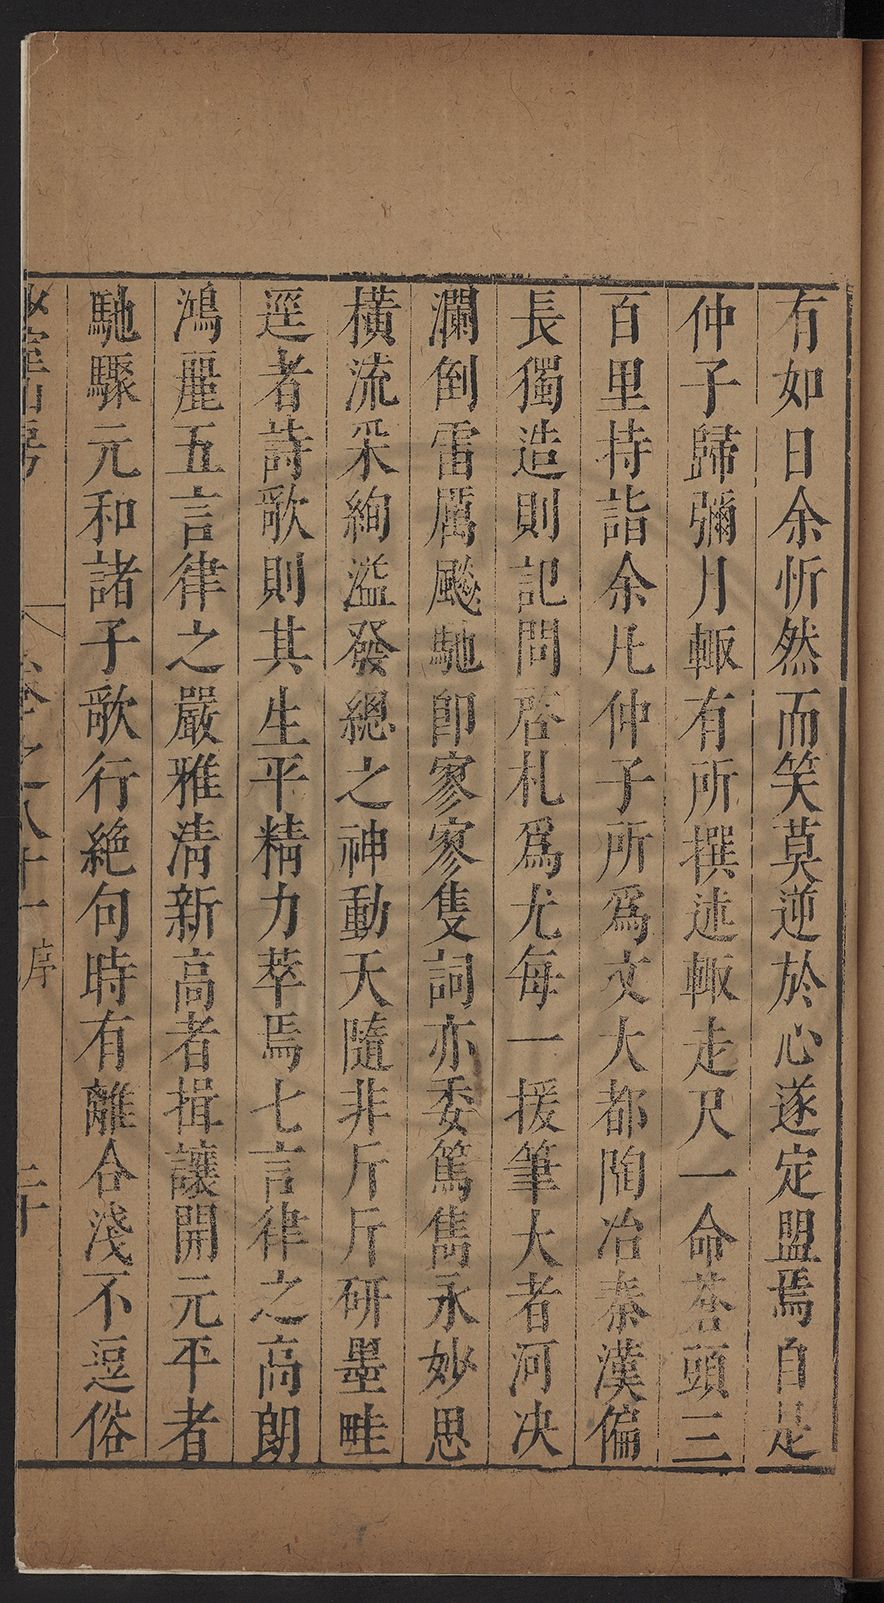 有如日余忻然而笑莫逆於心遂定盟焉自是
仲子歸彌月輙有所撰述輙走尺一命荅頭三
百里持詣余凡仲子所爲文大都陶冶秦漢偏
長獨造則記問啓札爲尤每一援筆大者河决
瀾倒雷厲颷馳卽寥寥隻詞亦委篤雋永妙思
横流采絢溢發總之神動天隨非斤斤研墨畦
逕者詩歌則其生平精力萃焉七言律之高朗
鴻麗五言律之嚴雅淸新高者揖讓開元平者
馳驟元和諸子歌行絶句時有離合淺不逗俗
山房
卷之八十一 序 二十